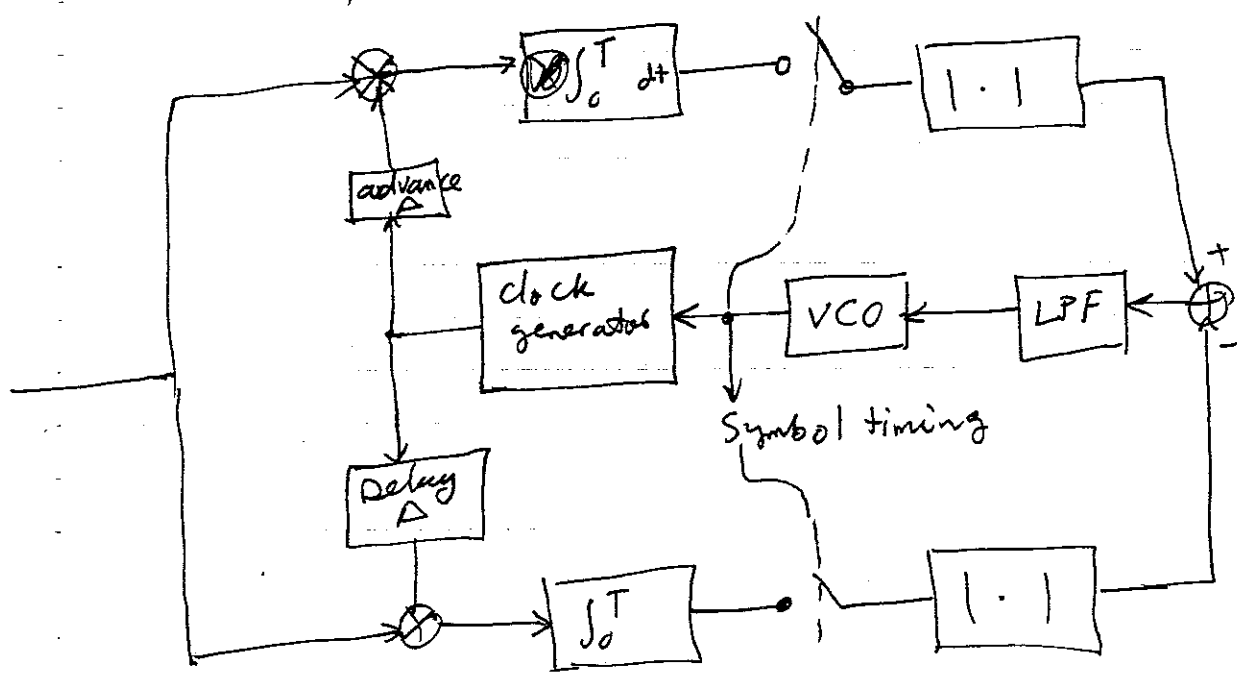 ∫₀ᵀ dt
| · |
advance
Δ
+
clock
generator
VCO
LPF
-
Symbol timing
Delay
Δ
∫₀ᵀ
| · |